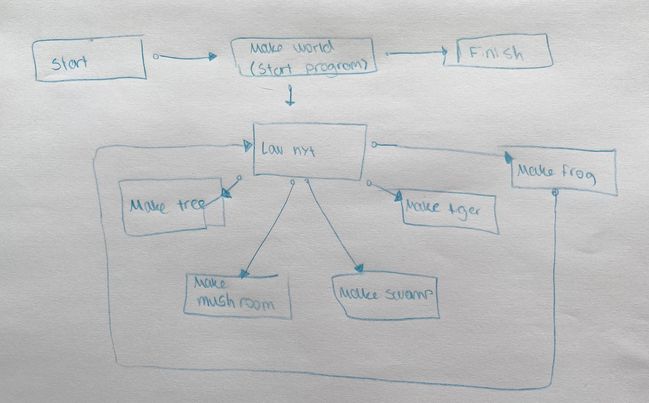 Start
Make world
(Start program)
Finish
Lav nyt
Make frog
Make tree
Make tiger
Make
mushroom
Make swamp